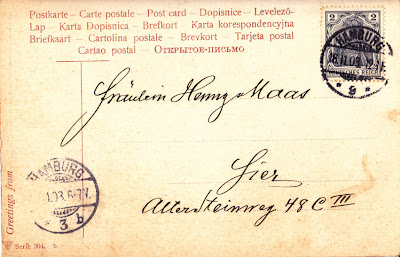 Postkarte – Carte postale – Post card – Dopisnice – Levelező-
Lap – Karta Dopisnica – Brefkort – Karta korespondencyjna
Briefkaart – Cartolina postale – Brevkort – Tarjeta postal
Cartao postal – ОТКРЫТОЕ-ПИСЬМО
2 2
HAMBURG
18.11.03. 12-1N.
* 9 *
DEUTSCHES REICH
Fräulein Henny Maas
Hier
Allersteinweg 48 C III
HAMBURG
.03. 6-7N.
* 3 b
Greetings from
Serie 304.